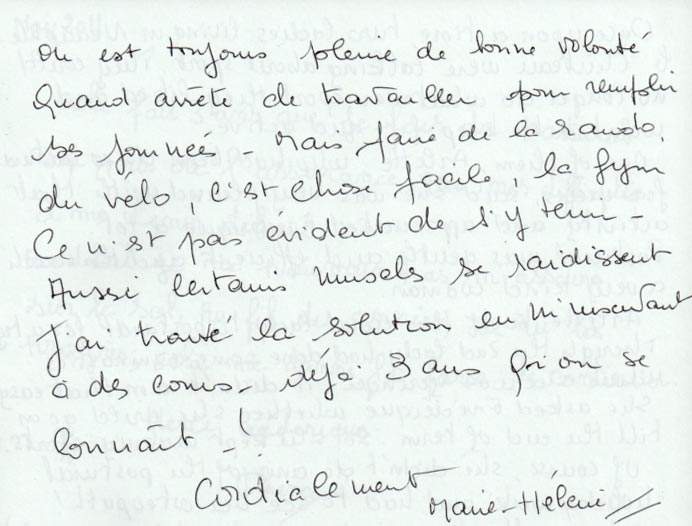 on est toujours pleine de bonne volonté
Quand arrête de travailler pour remplir
ses journées - Mais faire de la rando,
du vélo, c'est chose facile, la gym
Ce n'est pas évident de s'y tenir -
Aussi certains muscles se raidissent
J'ai trouvé la solution en m'inscrivant
à des cours : déjà 3 ans qu'on se
connaît !
Cordialement
Marie-Hélène